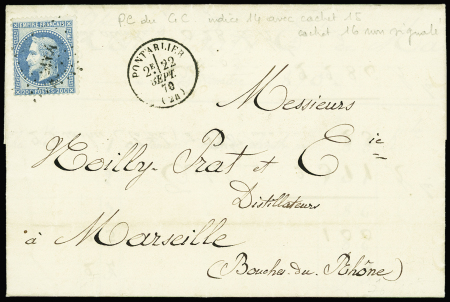 PC du GC indice 14 avec cachet 15
cachet 16 non signalé
EMPIRE FRANÇAIS
PONTARLIER
2E 22
SEPT.
70
(24)
Messieurs
Noilly-Prat et Cie
Distillateurs
à Marseille
(Bouches-du-Rhône)